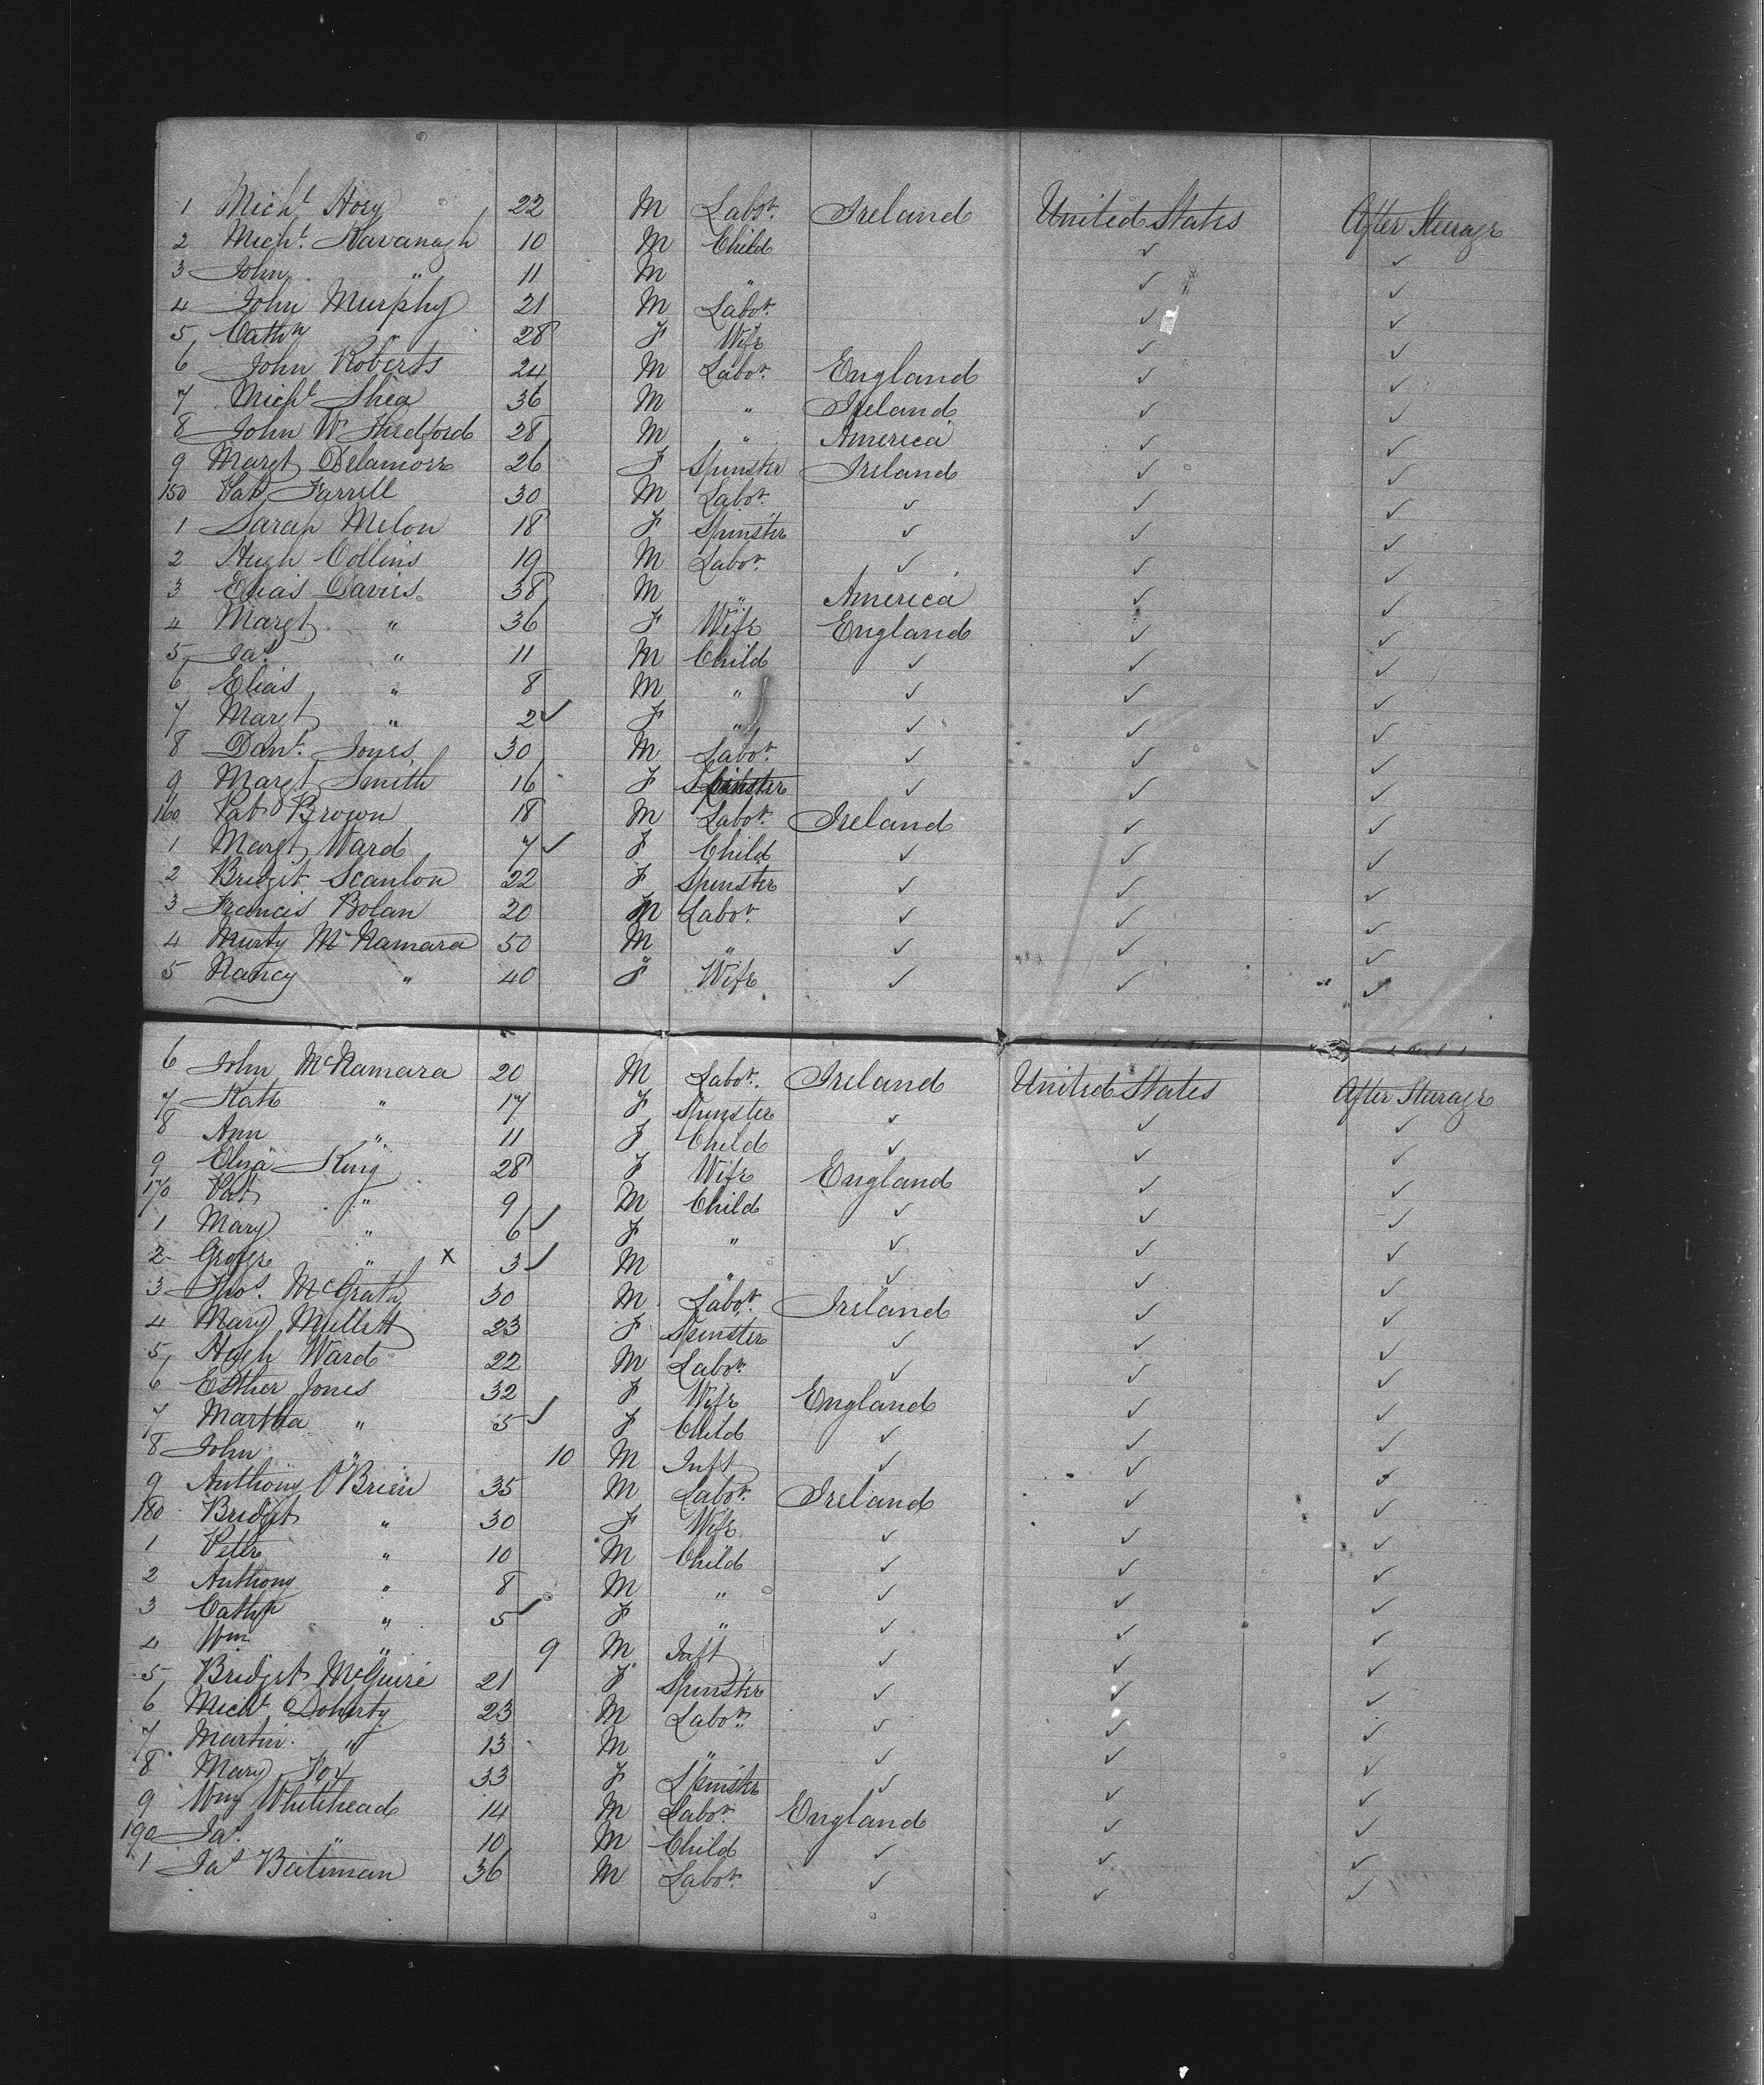 1 Michl Hory 22 M Labor. Ireland United States After Steerage
2 Michl. Kavanagh 10 M Child ✓ ✓
3 John " 11 M " ✓ ✓
4 John Murphy 21 M Labor. ✓ ✓
5 Cathn " 28 F Wife ✓ ✓
6 John Roberts 24 M Labor. England ✓ ✓
7 Michl Shea 36 M " Ireland ✓ ✓
8 John W Shedford 28 M " America ✓ ✓
9 Margt Delamore 26 F Spinster Ireland ✓ ✓
150 Pat Farrell 30 M Labor. ✓ ✓ ✓
1 Sarah Melon 18 F Spinster ✓ ✓ ✓
2 Hugh Collins 19 M Labor. ✓ ✓ ✓
3 Elias Davies 38 M " America ✓ ✓
4 Margt " 36 F Wife England ✓ ✓
5 Jas " 11 M Child ✓ ✓ ✓
6 Elias " 8 M " ✓ ✓ ✓
7 Margt " 2 ✓ F " ✓ ✓ ✓
8 Danl. Jones 30 M Labor. ✓ ✓ ✓
9 Margt Smith 16 F Spinster ✓ ✓ ✓
160 Pat Brown 18 M Labor. Ireland ✓ ✓
1 Margt Ward 7 ✓ F Child ✓ ✓ ✓
2 Bridget Scanlon 22 F Spinster ✓ ✓ ✓
3 Francis Bolan 20 M Labor. ✓ ✓ ✓
4 Murty McNamara 50 M " ✓ ✓ ✓
5 Nancy " 40 F Wife ✓ ✓ ✓
6 John McNamara 20 M Labor. Ireland United States After Steerage
7 Kate " 17 F Spinster ✓ ✓ ✓
8 Ann " 11 F Child ✓ ✓ ✓
9 Eliza King 28 F Wife England ✓ ✓
170 Pat " 9 M Child ✓ ✓ ✓
1 Mary " 6 ✓ F " ✓ ✓ ✓
2 " x 3 ✓ M " ✓ ✓ ✓
3 Thos. McGrath 30 M Labor. Ireland ✓ ✓
4 Mary Mullett 23 F Spinster ✓ ✓ ✓
5 Hugh Ward 22 M Labor. ✓ ✓ ✓
6 Esther Jones 32 F Wife England ✓ ✓
7 Martha " 5 ✓ F Child ✓ ✓ ✓
8 John " 10 M Inft ✓ ✓ ✓
9 Anthony O'Brien 35 M Labor. Ireland ✓ ✓
180 Bridget " 30 F Wife ✓ ✓ ✓
1 Peter " 10 M Child ✓ ✓ ✓
2 Anthony " 8 M " ✓ ✓ ✓
3 Cathn " 5 ✓ F " ✓ ✓ ✓
4 Wm " 9 M Inft ✓ ✓ ✓
5 Bridget McGuire 21 F Spinster ✓ ✓ ✓
6 Michl Doherty 23 M Labor. ✓ ✓ ✓
7 Martin " 13 M " ✓ ✓ ✓
8 Mary Fox 33 F Spinster ✓ ✓ ✓
9 Wm Whitehead 14 M Labor. England ✓ ✓
190 Jas " 10 M Child ✓ ✓ ✓
1 Jas Bateman 36 M Labor. ✓ ✓ ✓